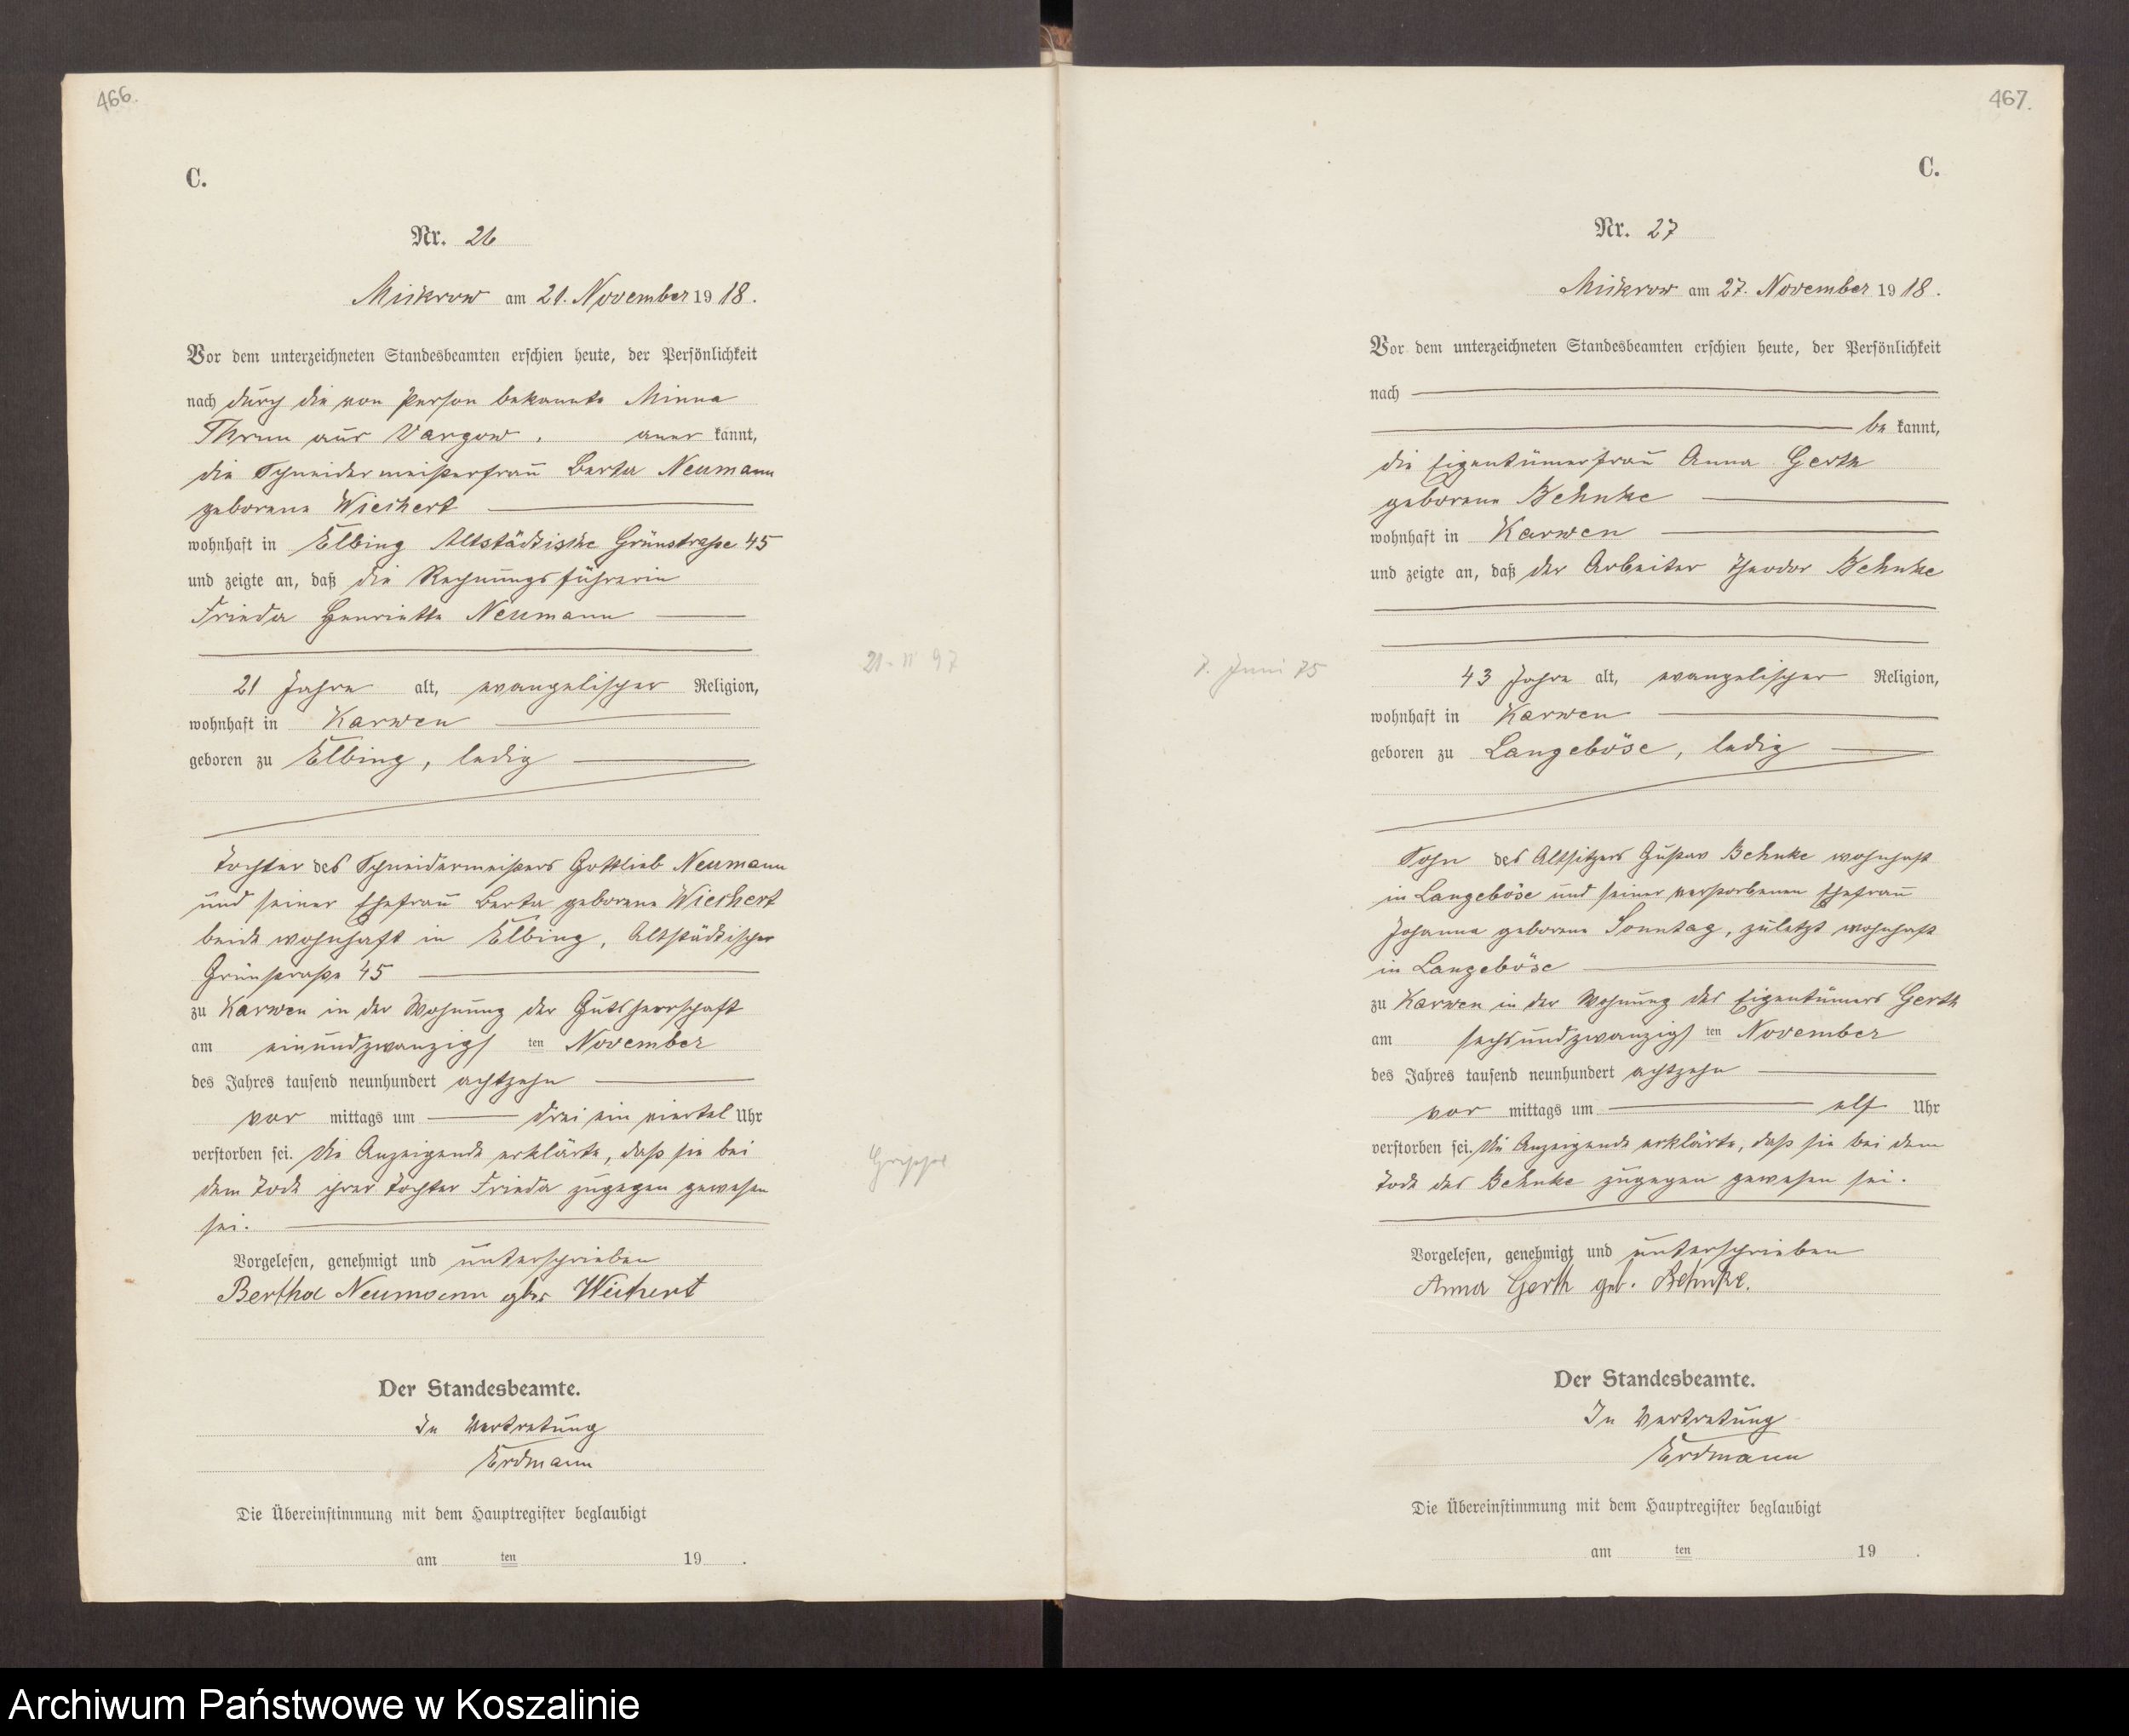 466.
C.
Nr. 26
Mickrow am 21. November 1918.
Vor dem unterzeichneten Standesbeamten erschien heute, der Persönlichkeit
nach durch die von Person bekannte Minna
Thrun aus Vargow, aner kannt,
die Schneidermeisterfrau Berta Neumann
geborene Wiechert
wohnhaft in Elbing Altstädtische Grünstraße 45
und zeigte an, daß die Rechnungsführerin
Frieda Henriette Neumann
21 Jahre alt, evangelischer Religion,
21. 11 97
wohnhaft in Karwen
geboren zu Elbing, ledig
Tochter des Schneidermeisters Gottlieb Neumann
und seiner Ehefrau Berta geborene Wiechert
beide wohnhaft in Elbing, Altstädtische
Grünstraße 45
zu Karwen in der Wohnung der Gutsherrschaft
am einundzwanzigs ten November
des Jahres tausend neunhundert achtzehn
vor mittags um drei ein viertel Uhr
verstorben sei. Die Anzeigende erklärte, daß sie bei
dem Tode ihrer Tochter Frieda zugegen gewesen
sei.
Grippe
Vorgelesen, genehmigt und unterschrieben
Bertha Neumann gbr Wichert
Der Standesbeamte.
In Vertretung
Erdmann
Die Übereinstimmung mit dem Hauptregister beglaubigt
am ten 19 .
467.
C.
Nr. 27
Mickrow am 27. November 1918.
Vor dem unterzeichneten Standesbeamten erschien heute, der Persönlichkeit
nach
be kannt,
die Eigentümerfrau Anna Gerth
geborene Behnke
wohnhaft in Karwen
und zeigte an, daß der Arbeiter Theodor Behnke
7. Juni 75
43 Jahre alt, evangelischer Religion,
wohnhaft in Karwen
geboren zu Langeböse, ledig
Sohn des Altsitzers Gustav Behnke wohnhaft
in Langeböse und seiner verstorbenen Ehefrau
Johanna geborene Sonntag, zuletzt wohnhaft
in Langeböse
zu Karwen in der Wohnung des Eigentümers Gerth
am sechsundzwanzigs ten November
des Jahres tausend neunhundert achtzehn
vor mittags um elf Uhr
verstorben sei. Die Anzeigende erklärte, daß sie bei dem
Tode des Behnke zugegen gewesen sei.
Vorgelesen, genehmigt und unterschrieben
Anna Gerth geb. Behnke.
Der Standesbeamte.
In Vertretung
Erdmann
Die Übereinstimmung mit dem Hauptregister beglaubigt
am ten 19 .
Archiwum Państwowe w Koszalinie